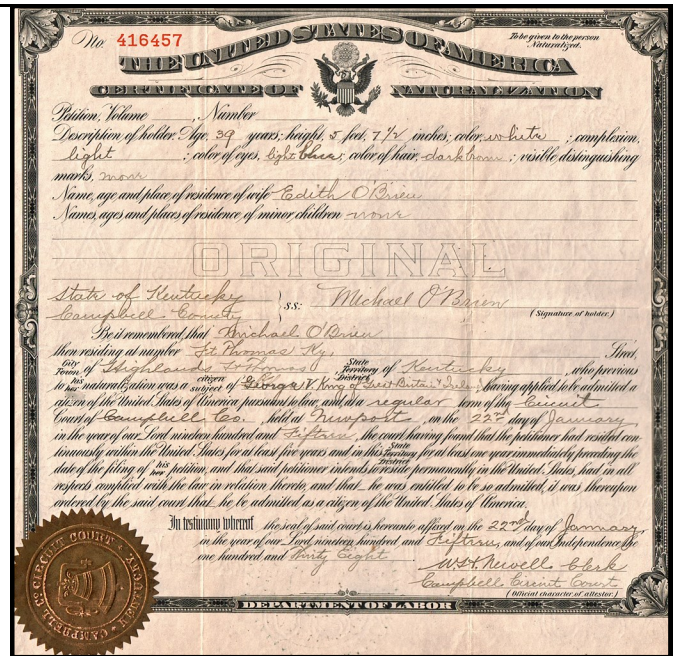 No. 416457
To be given to the person Naturalized.
THE UNITED STATES OF AMERICA
CERTIFICATE OF NATURALIZATION
Petition, Volume , Number
Description of holder: Age, 39 years; height, 5 feet, 7 1/2 inches; color, white ; complexion,
light ; color of eyes, light blue; color of hair, dark brown ; visible distinguishing
marks, none
Name, age and place of residence of wife Edith O'Brien
Names, ages and places of residence of minor children none
ORIGINAL
State of Kentucky
Campbell County } S.S: Michael O'Brien
(Signature of holder.)
Be it remembered, that Michael O'Brien
then residing at number Ft Thomas Ky, Street,
City Town of Highlands Ft Thomas State Territory District of Kentucky , who previous
to his her naturalization was a citizen subject of George V. King of Great Britain & Ireland, having applied to be admitted a
citizen of the United States of America pursuant to law, and, at a regular term of the Circuit
Court of Campbell Co. , held at Newport , on the 22nd day of January
in the year of our Lord nineteen hundred and Fifteen, the court having found that the petitioner had resided con-
tinuously within the United States for at least five years and in this State Territory District for at least one year immediately preceding the
date of the filing of his her petition, and that said petitioner intends to reside permanently in the United States, had in all
respects complied with the law in relation thereto, and that he was entitled to be so admitted, it was thereupon
ordered by the said court that he be admitted as a citizen of the United States of America.
In testimony whereof the seal of said court is hereunto affixed on the 22nd day of January,
in the year of our Lord nineteen hundred and Fifteen, and of our Independence the
one hundred and thirty Eight
W.H. Newell Clerk
Campbell Circuit Court
(Official character of attestor.)
DEPARTMENT OF LABOR
CIRCUIT COURT
CAMPBELL CO
KENTUCKY